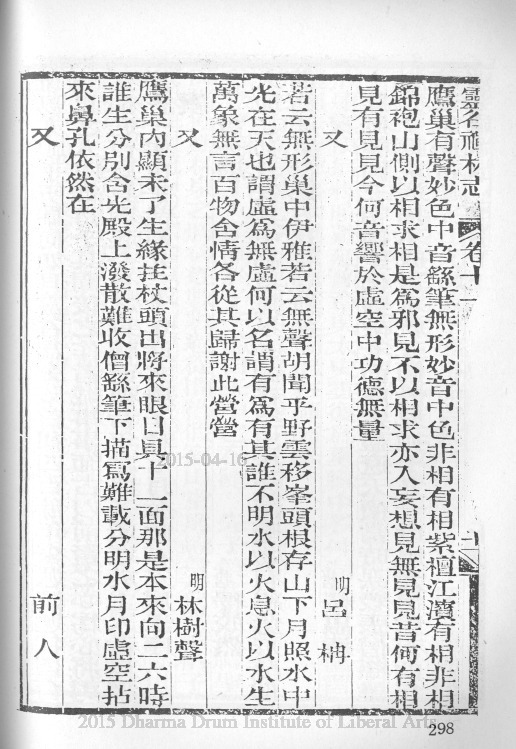 靈谷禪林志 卷十一
鷹巢有聲妙色中音繇筆無形妙音中色非相有相紫檀江濱有相非相
錦袍山側以相求相是爲邪見不以相求亦入妄想見無見見昔何有相
見有見見今何音響於虛空中功德無量
又 明 呂柟
若云無形巢中伊雅若云無聲胡聞乎野雲移峯頭根存山下月照水中
光在天也謂虛爲無虛何以名謂有爲有其誰不明水以火息火以水生
萬象無言百物含情各從其歸謝此營營
又 明 林樹聲
鷹巢內顯未了生緣拄杖頭出將來眼目具十一面那是本來向二六時
誰生分別含光殿上潑散難收僧繇筆下描寫難載分明水月印虛空拈
來鼻孔依然在
又 前人
2015-04-16
2015 Dharma Drum Institute of Liberal Arts
298